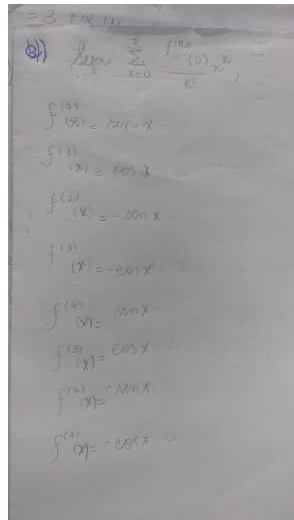 = 3
b)) Σ f^(k)(0) / k! x^k,
f^(0)(x) = sen x
f^(1)(x) = cos x
f^(2)(x) = - sen x
f^(3)(x) = - cos x
f^(4)(x) = sen x
f^(5)(x) = cos x
f^(6)(x) = - sen x
f^(7)(x) = - cos x